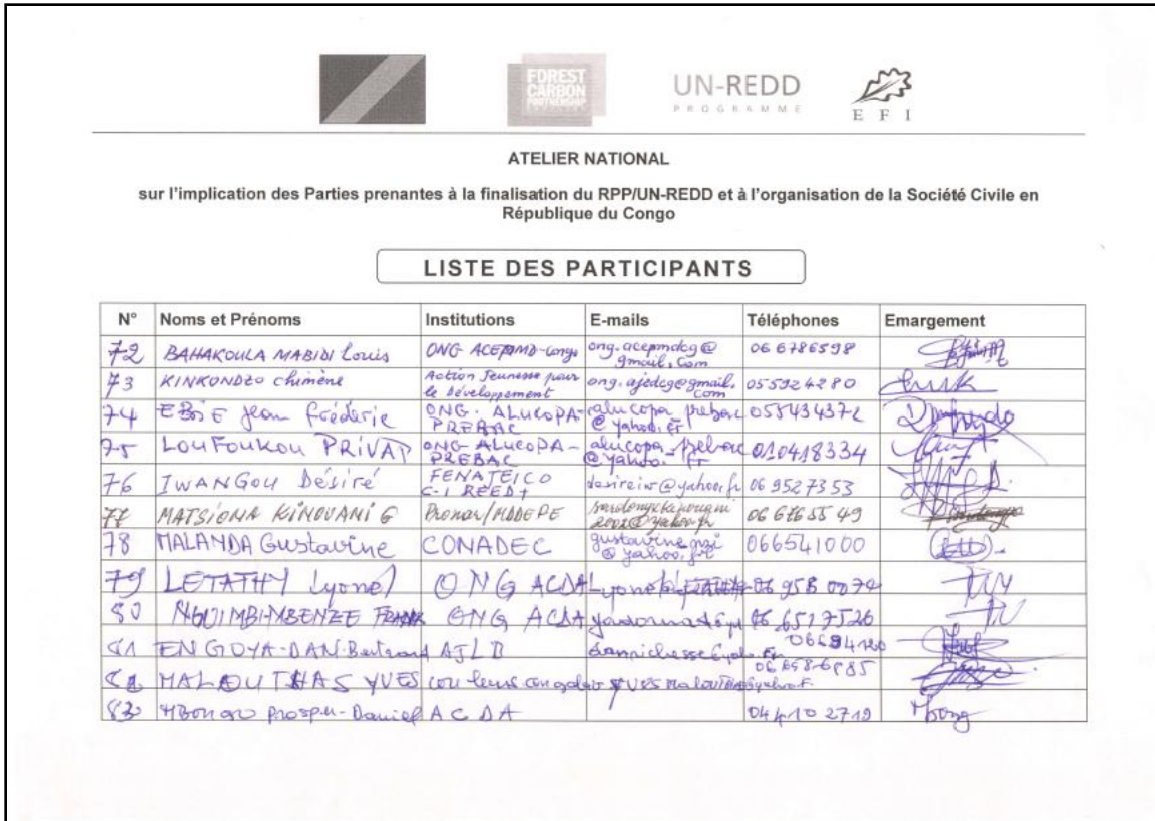 FOREST
CARBON
PARTNERSHIP
UN-REDD
PROGRAMME
EFI
ATELIER NATIONAL
sur l'implication des Parties prenantes à la finalisation du RPP/UN-REDD et à l'organisation de la Société Civile en
République du Congo
LISTE DES PARTICIPANTS
N° Noms et Prénoms Institutions E-mails Téléphones Emargement
72 BAHAKOULA MABIDI Louis ONG ACEPMD-Congo ong.acepmdcg@gmail.com 066786598
73 KINKONDZO Chimène Action Jeunesse pour le Développement ong.ajedcg@gmail.com 055924280
74 EBIE Jean Fréderic ONG. ALUCOPA-PREBAC alucopa_prebac@yahoo.fr 055434372
75 LOUFOUKOU PRIVAT ONG-ALUCOPA-PREBAC alucopa_prebac@yahoo.fr 010418334
76 IWANGOU Désiré FENATEICO desireiw@yahoo.fr 06 952 73 53
77 MATSIONA KINOUANI G 06 676 55 49
78 MALANDA Gustavine CONADEC @yahoo.fr 066541000
79 LETATHY Lyonel ONG ACDA 06 958 0074
80 ONG ACDA 06 651 75 26
81 ENGOYA-DAN-Bertrand AJLD
82 MALOUTHAS YVES
83 Prosper-Daniel ACDA 04 410 2719